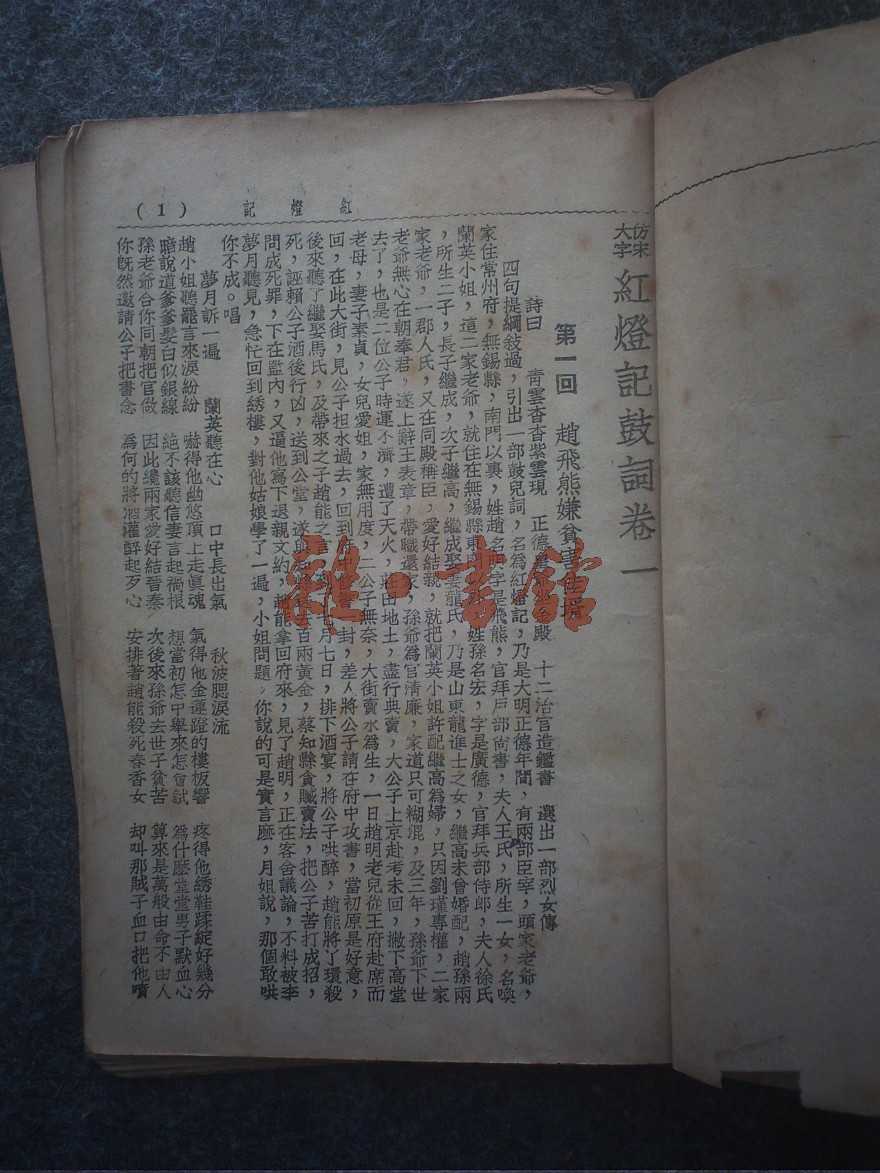 紅燈記
(1)
仿宋大字 紅燈記鼓詞卷一
第一回 趙飛熊嫌貧害
詩曰 青雲香香紫雲現 正德 殿 十二治官造鑑書 選出一部烈女傳
四句提綱敍過，引出一部鼓兒詞，名爲紅燈記，乃是大明正德年間，有兩部臣宰，頭家老爺，
家住常州府，無錫縣，南門以裏，姓趙名明字是飛熊，官拜戶部尚書，夫人王氏，所生一女，名喚
蘭英小姐，這二家老爺，就住在無錫縣東 姓孫名宏，字是廣德，官拜兵部侍郎，夫人徐氏
，所生二子，長子繼成，次子繼高，繼成娶妻龍氏，乃是山東龍進士之女，繼高未曾婚配，趙孫兩
家老爺，一郡人氏，又在同殿稱臣，愛好結親，就把蘭英小姐許配繼高爲婦，只因劉瑾專權，二家
老爺無心在朝奉君，遂上辭王表章，帶職還家，孫爺爲官清廉，家道只可糊混，及三年，孫爺下世
去了，也是二位公子時運不濟，遭了天火，莊田地土，盡行典賣，大公子上京赴考未回，撇下高堂
老母，妻子素貞，女兒愛姐，家無用度，二公子無奈，大街賣水爲生，一日趙明老兒從王府赴席而
回，在此大街，見公子担水過去，回到府中 封，差人將公子請在府中攻書，當初原是好意，
後來聽了繼娶馬氏，及帶來之子趙能之言， 七月七日，排下酒宴，將公子哄醉，趙能將丫環殺
死，誣賴公子酒後行凶，送到公堂，遂與 百兩黃金，蔡知縣貪贓賣法，把公子苦打成招，
問成死罪，下在監內，又逼他寫下退親文約，趙能拿回府來，見了趙明，正在客舍議論，不料被李
夢月聽見，急忙回到綉樓，對他姑娘學了一遍，小姐問題，你說的可是實言麽，月姐說，那個敢哄
你不成。唱
夢月訴一遍 蘭英聽在心 口中長出氣 秋波腮淚流
趙小姐聽罷言來淚紛紛 嚇得他幽悠頂上走眞魂 氣得他金蓮蹬的樓板響 疼得他綉鞋蹂綻好幾分
暗說道爹爹髮白似銀線 絶不該聽信妻言起禍根 想當初怎中舉來怎會試 爲什麽堂堂男子默血心
孫老爺合你同朝把官做 因此纔兩家愛好結晉秦 次後來孫爺去世子貧苦 算來是萬般由命不由人
你旣然邀請公子把書念 爲何的將酒灌醉起歹心 安排著趙能殺死春香女 却叫那賊子血口把他噴
雜·書館